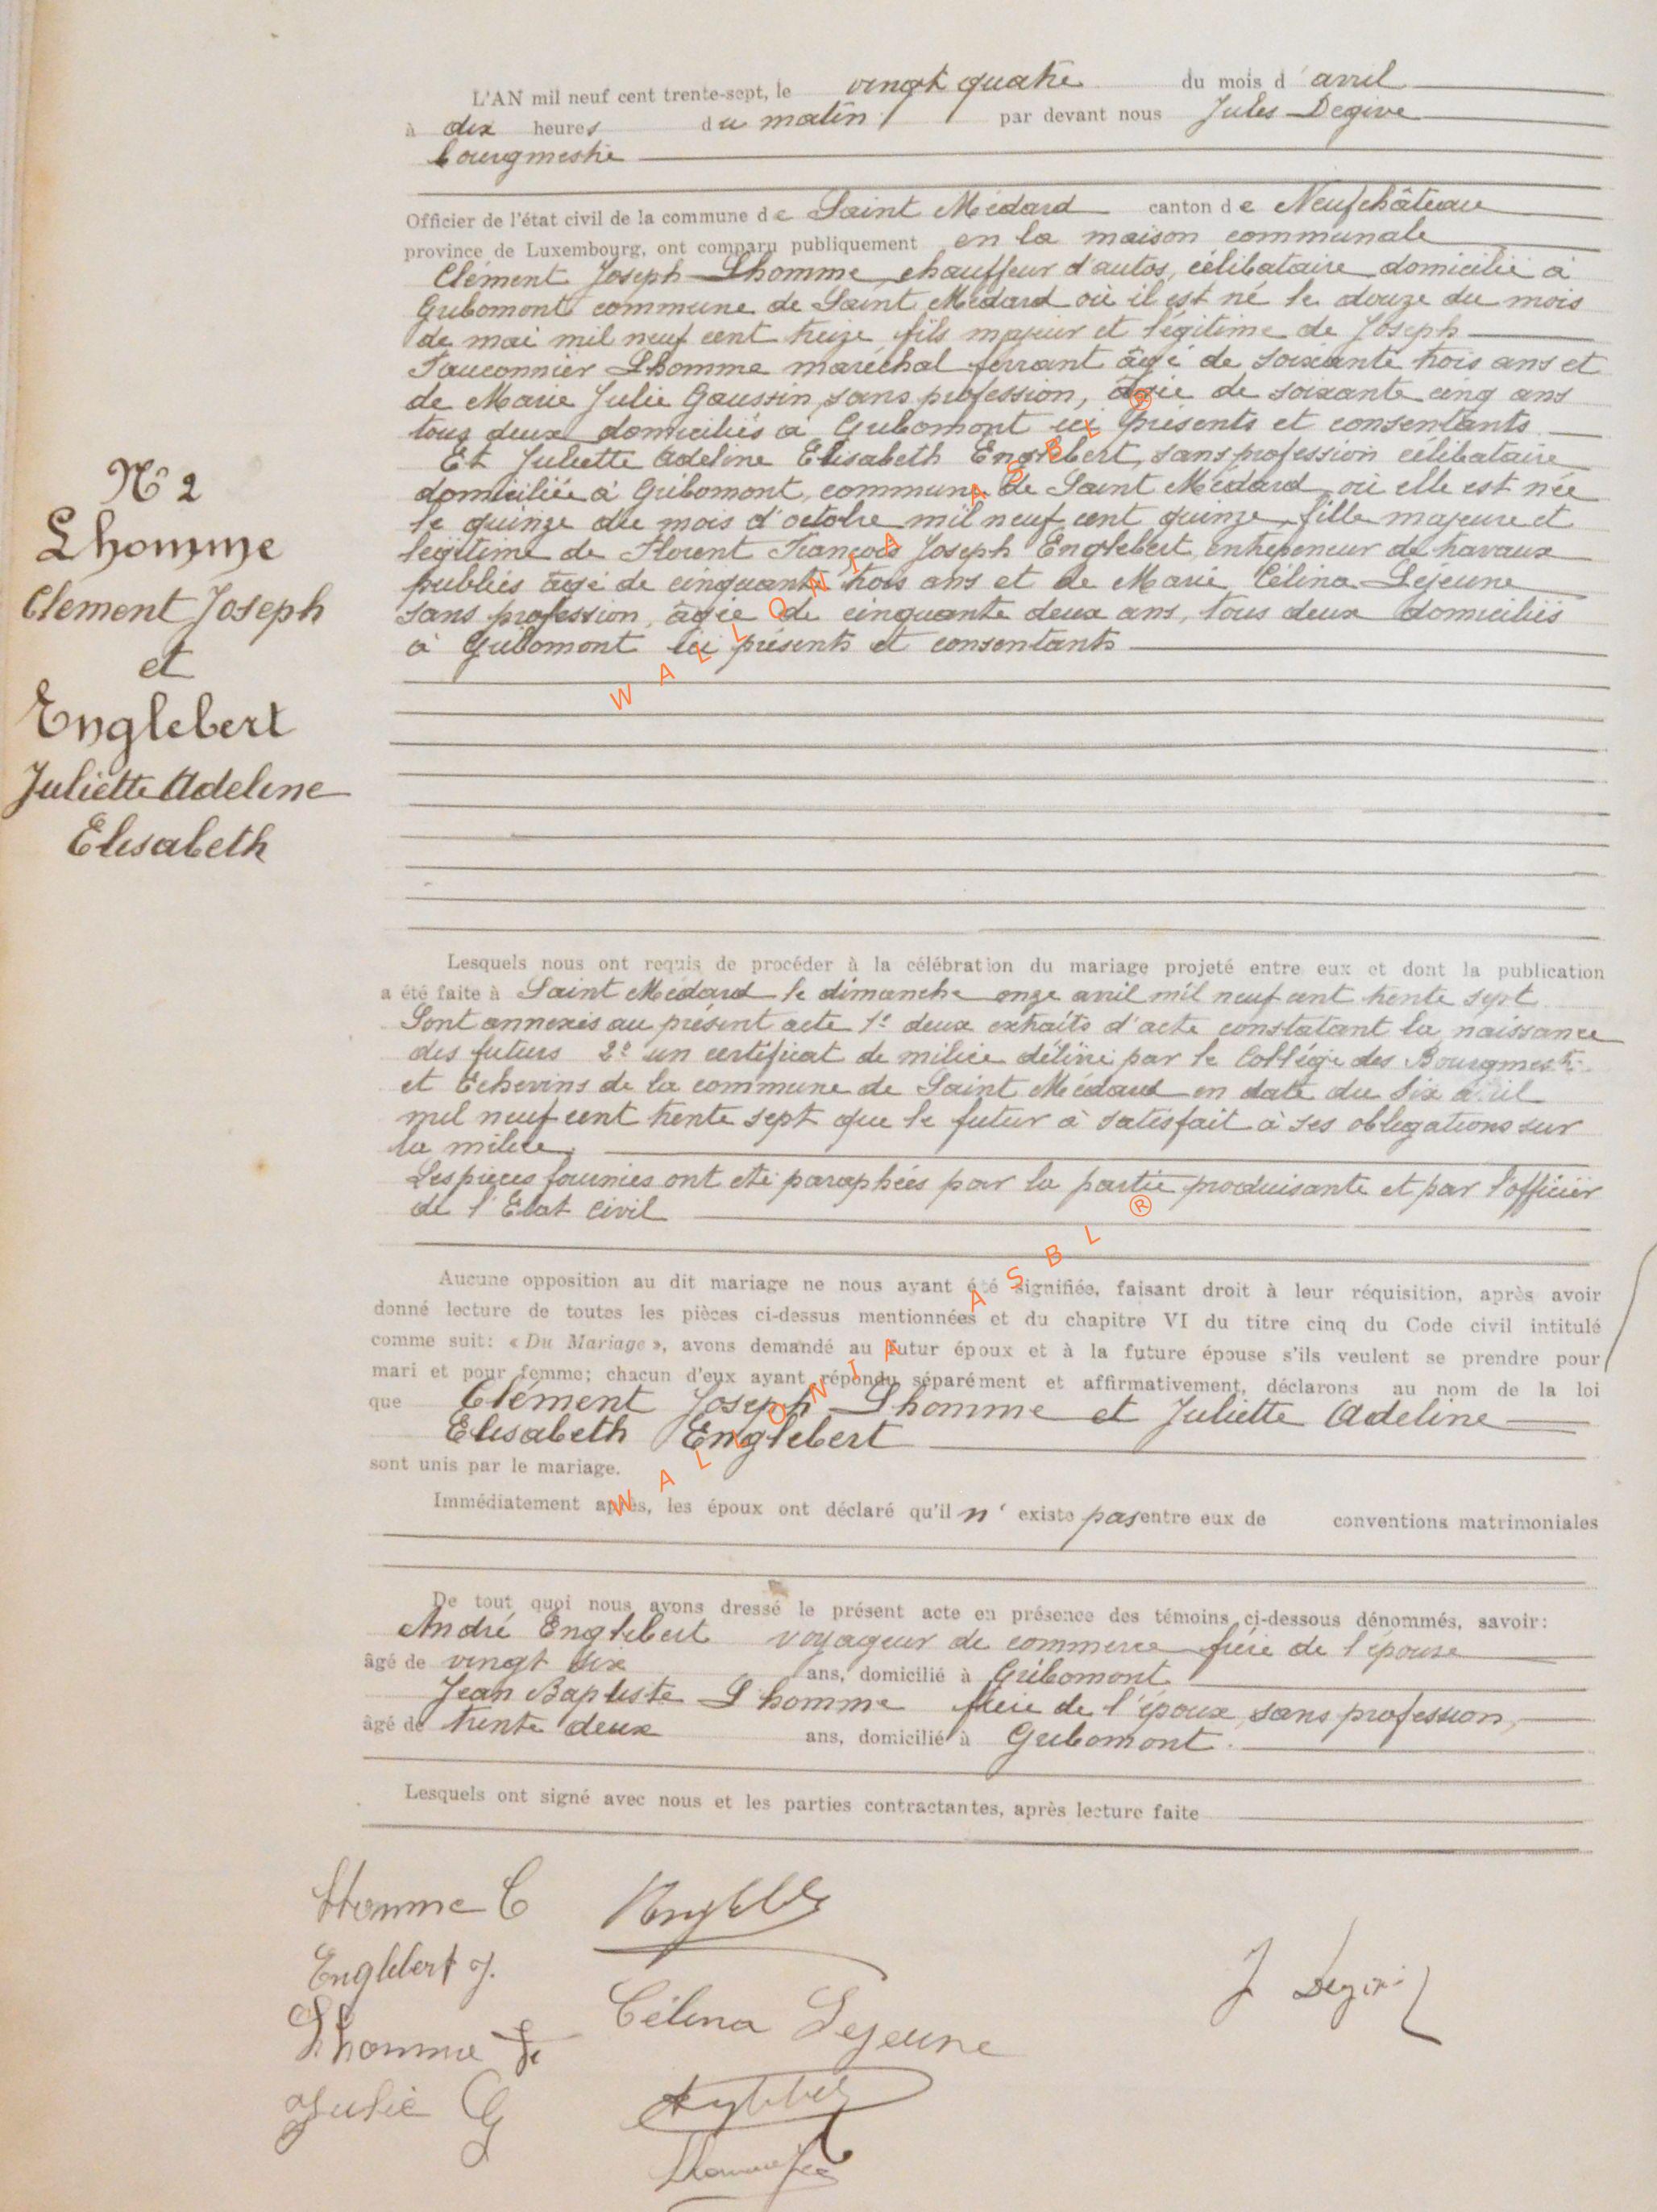 L'AN mil neuf cent trente-sept, le vingt quatre du mois d'avril
à dix heures du matin par devant nous Jules Degive
bourgmestre
Officier de l'état civil de la commune de Saint Médard canton de Neufchâteau
province de Luxembourg, ont comparu publiquement en la maison communale
Clément Joseph Lhomme, chauffeur d'autos, célibataire domicilié à
Gribomont commune de Saint Médard où il est né le douze du mois
de mai mil neuf cent treize fils majeur et légitime de Joseph
Fauconnier Lhomme maréchal ferrant âgé de soixante trois ans et
de Marie Julie Gaussin, sans profession, âgée de soixante cinq ans
tous deux domiciliés à Gribomont ici présents et consentants
Et Juliette Adeline Elisabeth Englebert, sans profession célibataire
domiciliée à Gribomont, commune de Saint Médard où elle est née
le quinze du mois d'octobre mil neuf cent quinze, fille majeure et
légitime de Florent François Joseph Englebert, entrepeneur de travaux
publics âgé de cinquante trois ans et de Marie Célina Lejeune
sans profession, âgée de cinquante deux ans, tous deux domiciliés
à Gribomont ici présents et consentants
N° 2
Lhomme
Clément Joseph
et
Englebert
Juliette Adeline
Elisabeth
Lesquels nous ont requis de procéder à la célébration du mariage projeté entre eux et dont la publication
a été faite à Saint Médard le dimanche onze avril mil neuf cent trente sept
Sont annexés au présent acte 1° deux extraits d'acte constatant la naissance
des futurs 2° un certificat de milice délivré par le Collège des Bourgmestre
et Echevins de la commune de Saint Médard en date du six avril
mil neuf cent trente sept que le futur à satisfait à ses obligations sur
la milice.
Les pièces fournies ont été paraphées par la partie produisante et par l'officier
de l'Etat civil
Aucune opposition au dit mariage ne nous ayant été signifiée, faisant droit à leur réquisition, après avoir
donné lecture de toutes les pièces ci-dessus mentionnées et du chapitre VI du titre cinq du Code civil intitulé
comme suit: « Du Mariage », avons demandé au futur époux et à la future épouse s'ils veulent se prendre pour
mari et pour femme; chacun d'eux ayant répondu séparément et affirmativement, déclarons au nom de la loi
que Clément Joseph Lhomme et Juliette Adeline
Elisabeth Englebert
sont unis par le mariage.
Immédiatement après, les époux ont déclaré qu'il n'existe pas entre eux de conventions matrimoniales
De tout quoi nous avons dressé le présent acte en présence des témoins ci-dessous dénommés, savoir:
André Englebert voyageur de commerce frère de l'épouse
âgé de vingt six ans, domicilié à Gribomont
Jean Baptiste Lhomme frère de l'époux, sans profession,
âgé de trente deux ans, domicilié à Gribomont.
Lesquels ont signé avec nous et les parties contractantes, après lecture faite
Lhomme C
Englebert J.
Célina Lejeune
J Degive
Lhomme
Julie G
WALLONIA ASBL ®
WALLONIA ASBL ®